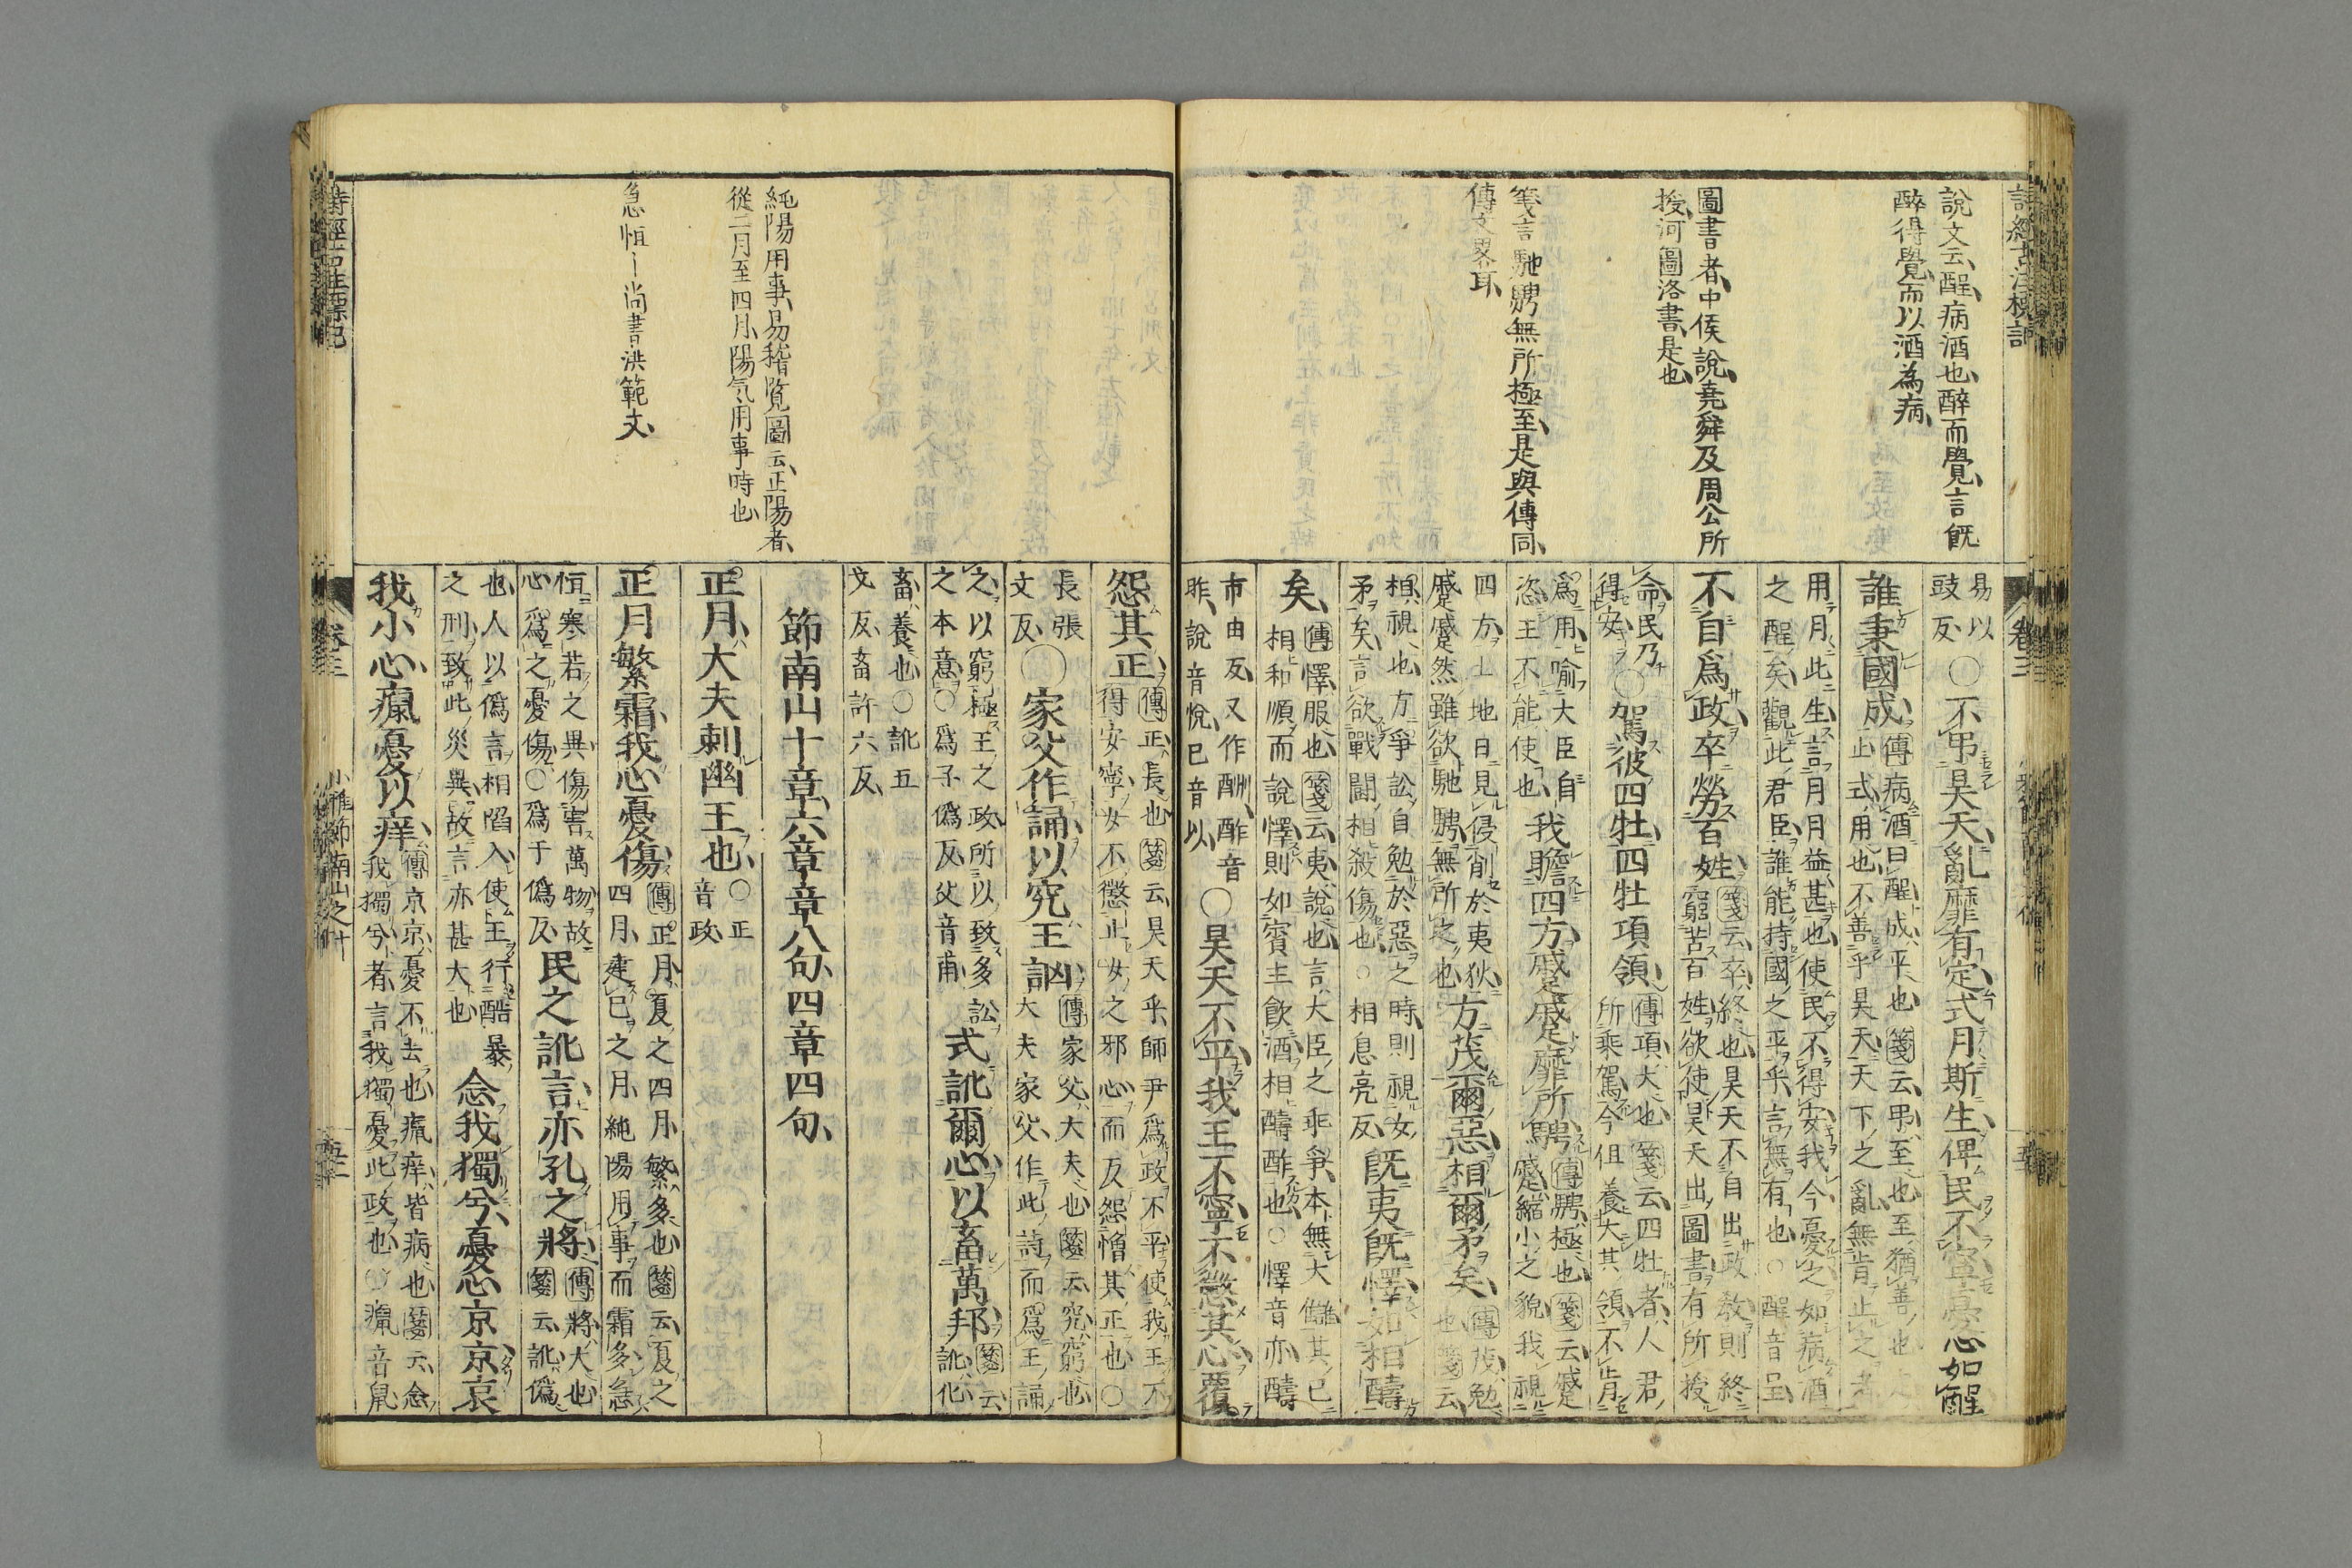 詩經古注標記
說文云、酲病酒也、醉而覺、言既
醉得覺、而以酒為病、
圖書者、中侯說、堯舜及周公所
授、河圖洛書、是也、
箋言馳騁無所極至、是與傳同、
傳文畧耳、
易以
豉反
○不弔昊天、亂靡有定、式月斯生、俾民不寧、憂心如酲
誰秉國成、
傳病酒曰酲、成、平也、箋云、弔、至也、至、猶善也、
止、式、用也、不善乎昊天、天下之亂、無肯止之者、
用月此生、言月月益甚也、使民不得安、我今憂之、如病酒
之酲矣、觀此君臣、誰能持國之平乎、言無有也、○酲音呈、
不自為政、卒勞百姓、
箋云、卒、終也、昊天不自出政教、則終
窮苦百姓、欲使昊天出圖書有所授
命、民乃
得安、
○駕彼四牡、四牡項領、
傳項、大也、箋云、四牡者、人君
所乘駕、今但養大其領、不肯
爲用、喻大臣自
恣、王不能使也、
我瞻四方、蹙蹙靡所騁、
傳騁、極也、箋云、蹙
蹙、縮小之貌、我視
四方土地、日見侵削於夷狄、
蹙蹙然、雖欲馳騁、無所之也、
方茂爾惡、相爾矛矣、
傳茂、勉
也、箋云、
相、視也、方爭訟自勉於惡之時、則視女
矛矣、言欲戰鬪相殺傷也、○相息亮反、
既夷既懌、如相醻
矣、
傳懌、服也、箋云、夷、說也、言大臣之乖爭、本無大讎、其已
相和順而說懌、則如賓主飲酒相醻酢也、○懌音亦、醻
市由反、又作酬、酢音
昨、說音悅、已音以、
○昊天不平、我王不寧、不懲其心、覆
卷三
怨其正、
傳正、長也、箋云、昊天乎、師尹爲政不平、使我王不
得安寧、女不懲止女之邪心、而反怨憎其正也、○
長張
丈反、
○家父作誦、以究王訩
傳家父、大夫也、箋云、究、窮也、
大夫家父、作此詩而爲王誦
之、以窮極王之政所以致多訟
之本意、○爲于僞反、父音甫、
式訛爾心、以畜萬邦、
箋云、
訛、化、
畜、養也、○訛五
戈反、畜許六反、
節南山十章、六章章八句、四章四句、
正月、大夫刺幽王也、
○正
音政、
正月繁霜、我心憂傷、
傳正月、夏之四月、繁、多也、箋云、夏之
四月、建巳之月、純陽用事而霜多、急
恒寒若之異、傷害萬物、故
心爲之憂傷、○爲于僞反、
民之訛言、亦孔之將、
傳將、大也、
箋云、訛、僞
也、人以僞言相陷入、使王行酷暴
之刑、致此災異、故言亦甚大也
念我獨兮、憂心京京、哀
我小心、癙憂以痒、
傳京京、憂不去也、癙痒、皆病也、箋云、念
我獨兮者、言我獨憂此政也、○癙音鼠
純陽用事、易稽覽圖云、正陽者、
從二月至四月、陽気用事時也、
急恒｜尚書洪範文、
詩經古注標記
卷三
小雅節南山之什